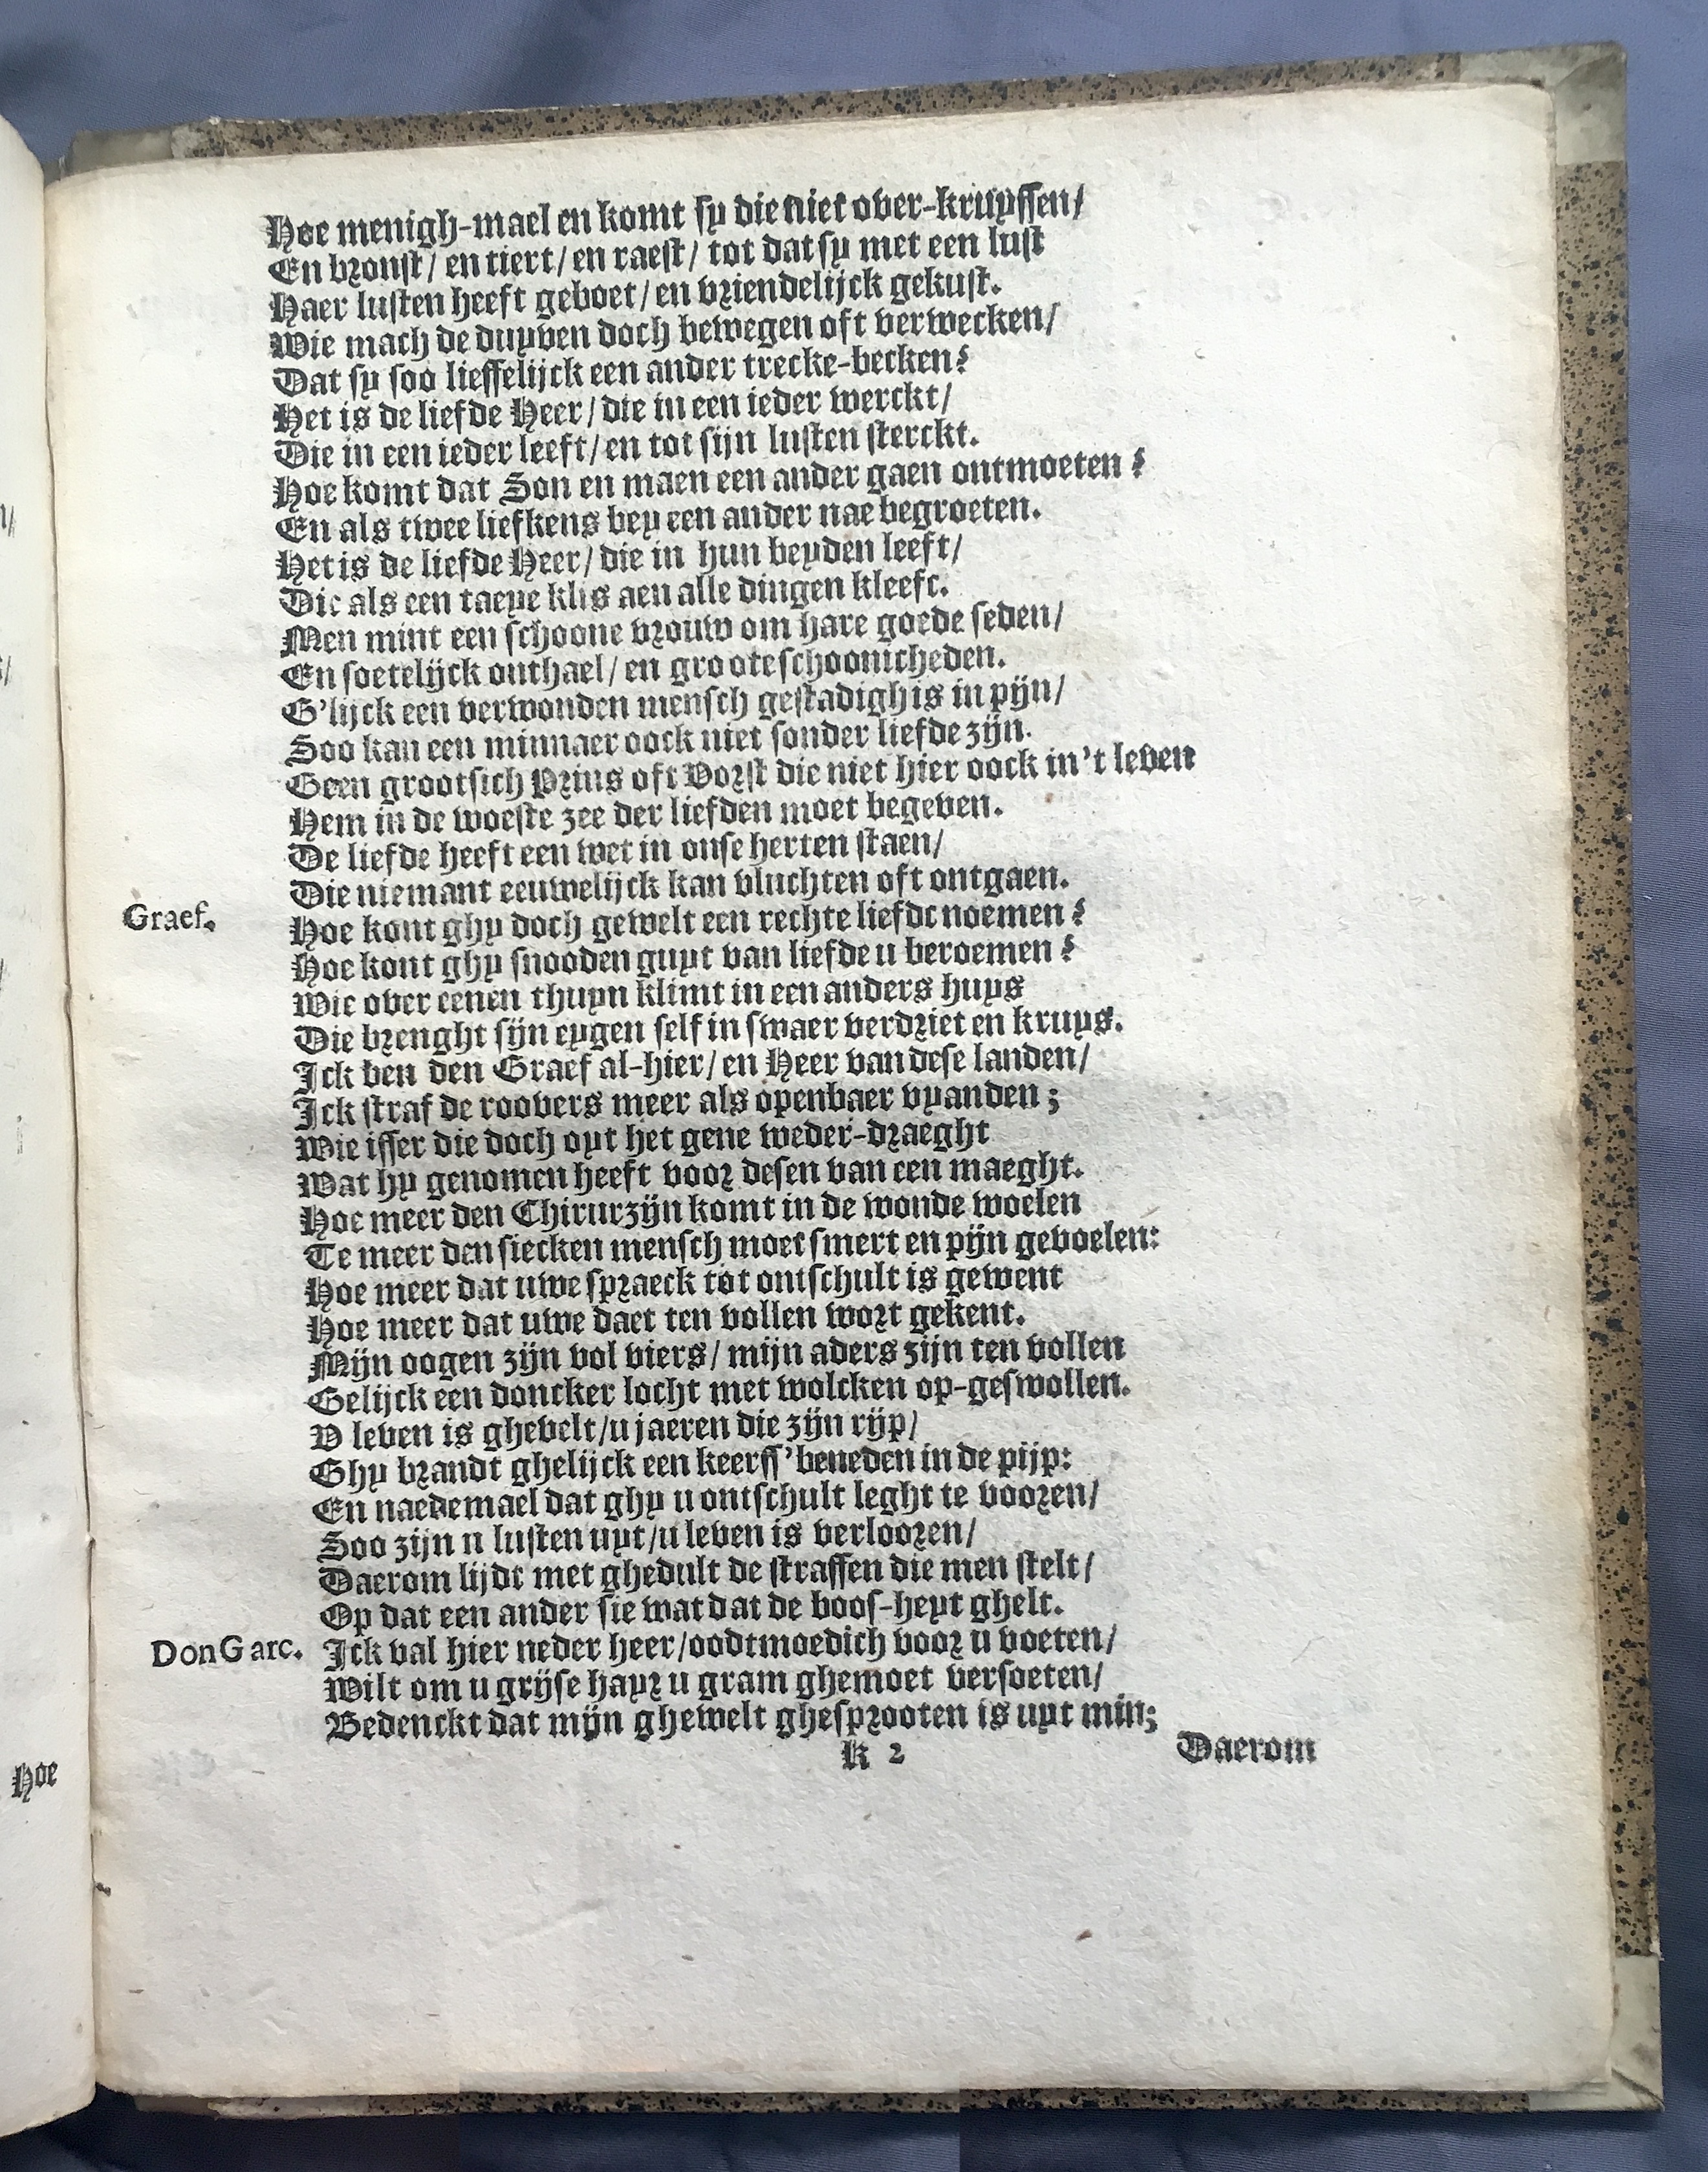 Hoe menigh-mael en komt sy die niet over-kruyssen/
En bronst/ en tiert/ en raest/ tot dat sy met een lust
Haer lusten heeft geboet/ en vriendelijck gekust.
Wie mach de duyven doch bewegen oft verwecken/
Dat sy soo lieffelijck een ander trecke-becken?
Het is de liefde Heer/ die in een ieder werckt/
Die in een ieder leeft/ en tot sijn lusten sterckt.
Hoe komt dat Son en maen een ander gaen ontmoeten?
En als twee liefkens bey een ander nae begroeten.
Het is de liefde Heer/ die in hun beyden leeft/
Die als een taeye klis aen alle dingen kleeft.
Men mint een schoone vrouw om hare goede seden/
En soetelijck onthael/ en groote schoonicheden.
G'lijck een verwonden mensch gestadigh is in pijn/
Soo kan een minnaer oock niet sonder liefde zijn.
Geen grootsich Prins oft Vorst die niet hier oock in't leven
Hem in de woeste zee der liefden moet begeven.
De liefde heeft een wet in onse herten staen/
Die niemant eeuwelijck kan vluchten oft ontgaen.
Graef. Hoe kont ghy doch gewelt een rechte liefde noemen?
Hoe kont ghy snooden guyt van liefde u beroemen?
Wie over eenen thuyn klimt in een anders huys
Die brenght sijn eygen self in swaer verdriet en kruys.
Ick ben den Graef al-hier/ en Heer van dese landen/
Ick straf de roovers meer als openbaer vyanden;
Wie isser die doch oyt het gene weder-draeght
Wat hy genomen heeft voor desen van een maeght.
Hoe meer den Chirurzijn komt in de wonde woelen
Te meer den siecken mensch moet smert en pijn gevoelen:
Hoe meer dat uwe spraeck tot ontschult is gewent
Hoe meer dat uwe daet ten vollen wort gekent.
Mijn oogen zijn vol viers/ mijn aders zijn ten vollen
Gelijck een doncker locht met wolcken op-geswollen.
V leven is ghevelt/ u jaeren die zijn rijp/
Ghy brandt ghelijck een keerss' beneden in de pijp:
En naedemael dat ghy u ontschult leght te vooren/
Soo zijn u lusten uyt/ u leven is verlooren/
Daerom lijdt met ghedult de straffen die men stelt/
Op dat een ander sie wat dat de boos-heyt ghelt.
Don Garc. Ick val hier neder heer/ oodtmoedich voor u voeten/
Wilt om u grijse hayr u gram ghemoet versoeten/
Bedenckt dat mijn ghewelt ghesprooten is uyt min;
K 2 Daerom
Hoe